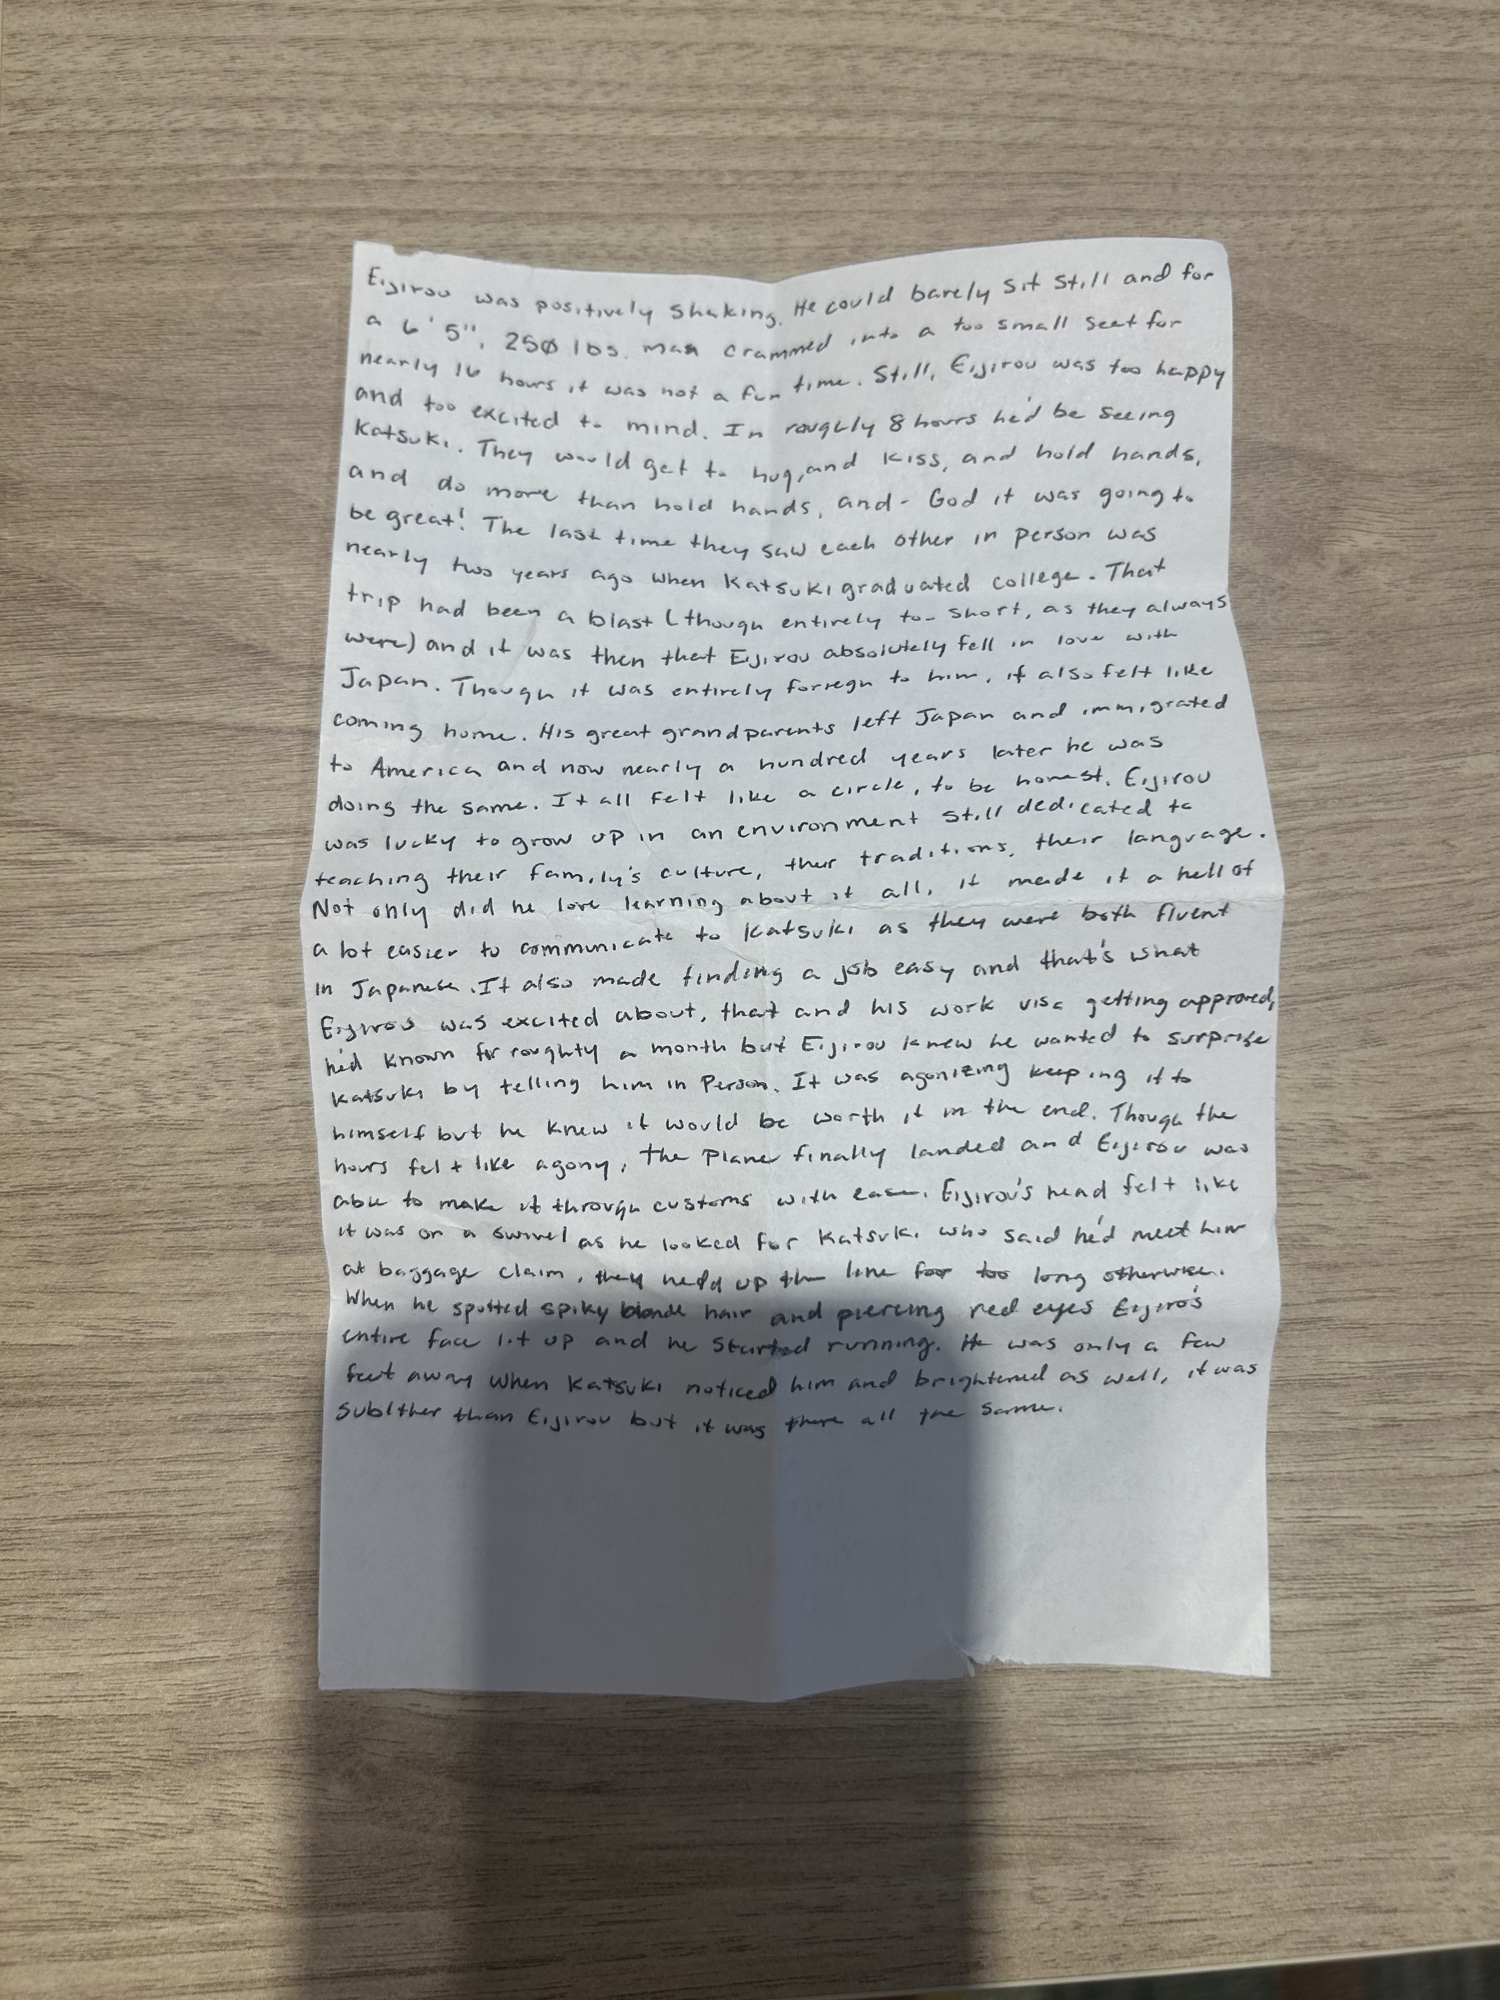 Eijirou was positively shaking. He could barely sit still and for
a 6'5", 250 lbs. man crammed into a too small seat for
nearly 16 hours it was not a fun time. Still, Eijirou was too happy
and too excited to mind. In roughly 8 hours he'd be seeing
Katsuki. They would get to hug, and kiss, and hold hands,
and do more than hold hands, and - God it was going to
be great! The last time they saw each other in person was
nearly two years ago when Katsuki graduated college. That
trip had been a blast (though entirely too short, as they always
were) and it was then that Eijirou absolutely fell in love with
Japan. Though it was entirely forregn to him, it also felt like
coming home. His great grandparents left Japan and immigrated
to America and now nearly a hundred years later he was
doing the same. It all felt like a circle, to be honest. Eijirou
was lucky to grow up in an environment still dedicated to
teaching their family's culture, their traditions, their language.
Not only did he love learning about it all, it made it a hell of
a lot easier to communicate to Katsuki as they were both fluent
in Japanese. It also made finding a job easy and that's what
Eijirou was excited about, that and his work visa getting approved,
he'd known for roughty a month but Eijirou knew he wanted to surprise
Katsuki by telling him in person. It was agonizing keeping it to
himself but he knew it would be worth it in the end. Though the
hours felt like agony, the plane finally landed and Eijirou was
able to make it through customs with ease. Eijirou's head felt like
it was on a swivel as he looked for Katsuki who said he'd meet him
at baggage claim, they held up the line for too long otherwise.
When he spotted spiky blonde hair and piercing red eyes Eijiro's
entire face lit up and he started running. He was only a few
feet away when Katsuki noticed him and brightened as well, it was
sublther than Eijirou but it was there all the same.